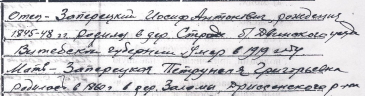 Отец - Заперецкий Иосиф Антонович, рождения
1845-48 гг родился в дер. Строды б/ Двинского уезда
Витебской губернии умер в 1919 году
Мать - Заперецкая Петрунеля Григорьевна
родилась в 1860 г. в дер. Загомы, Дрисенского р-на